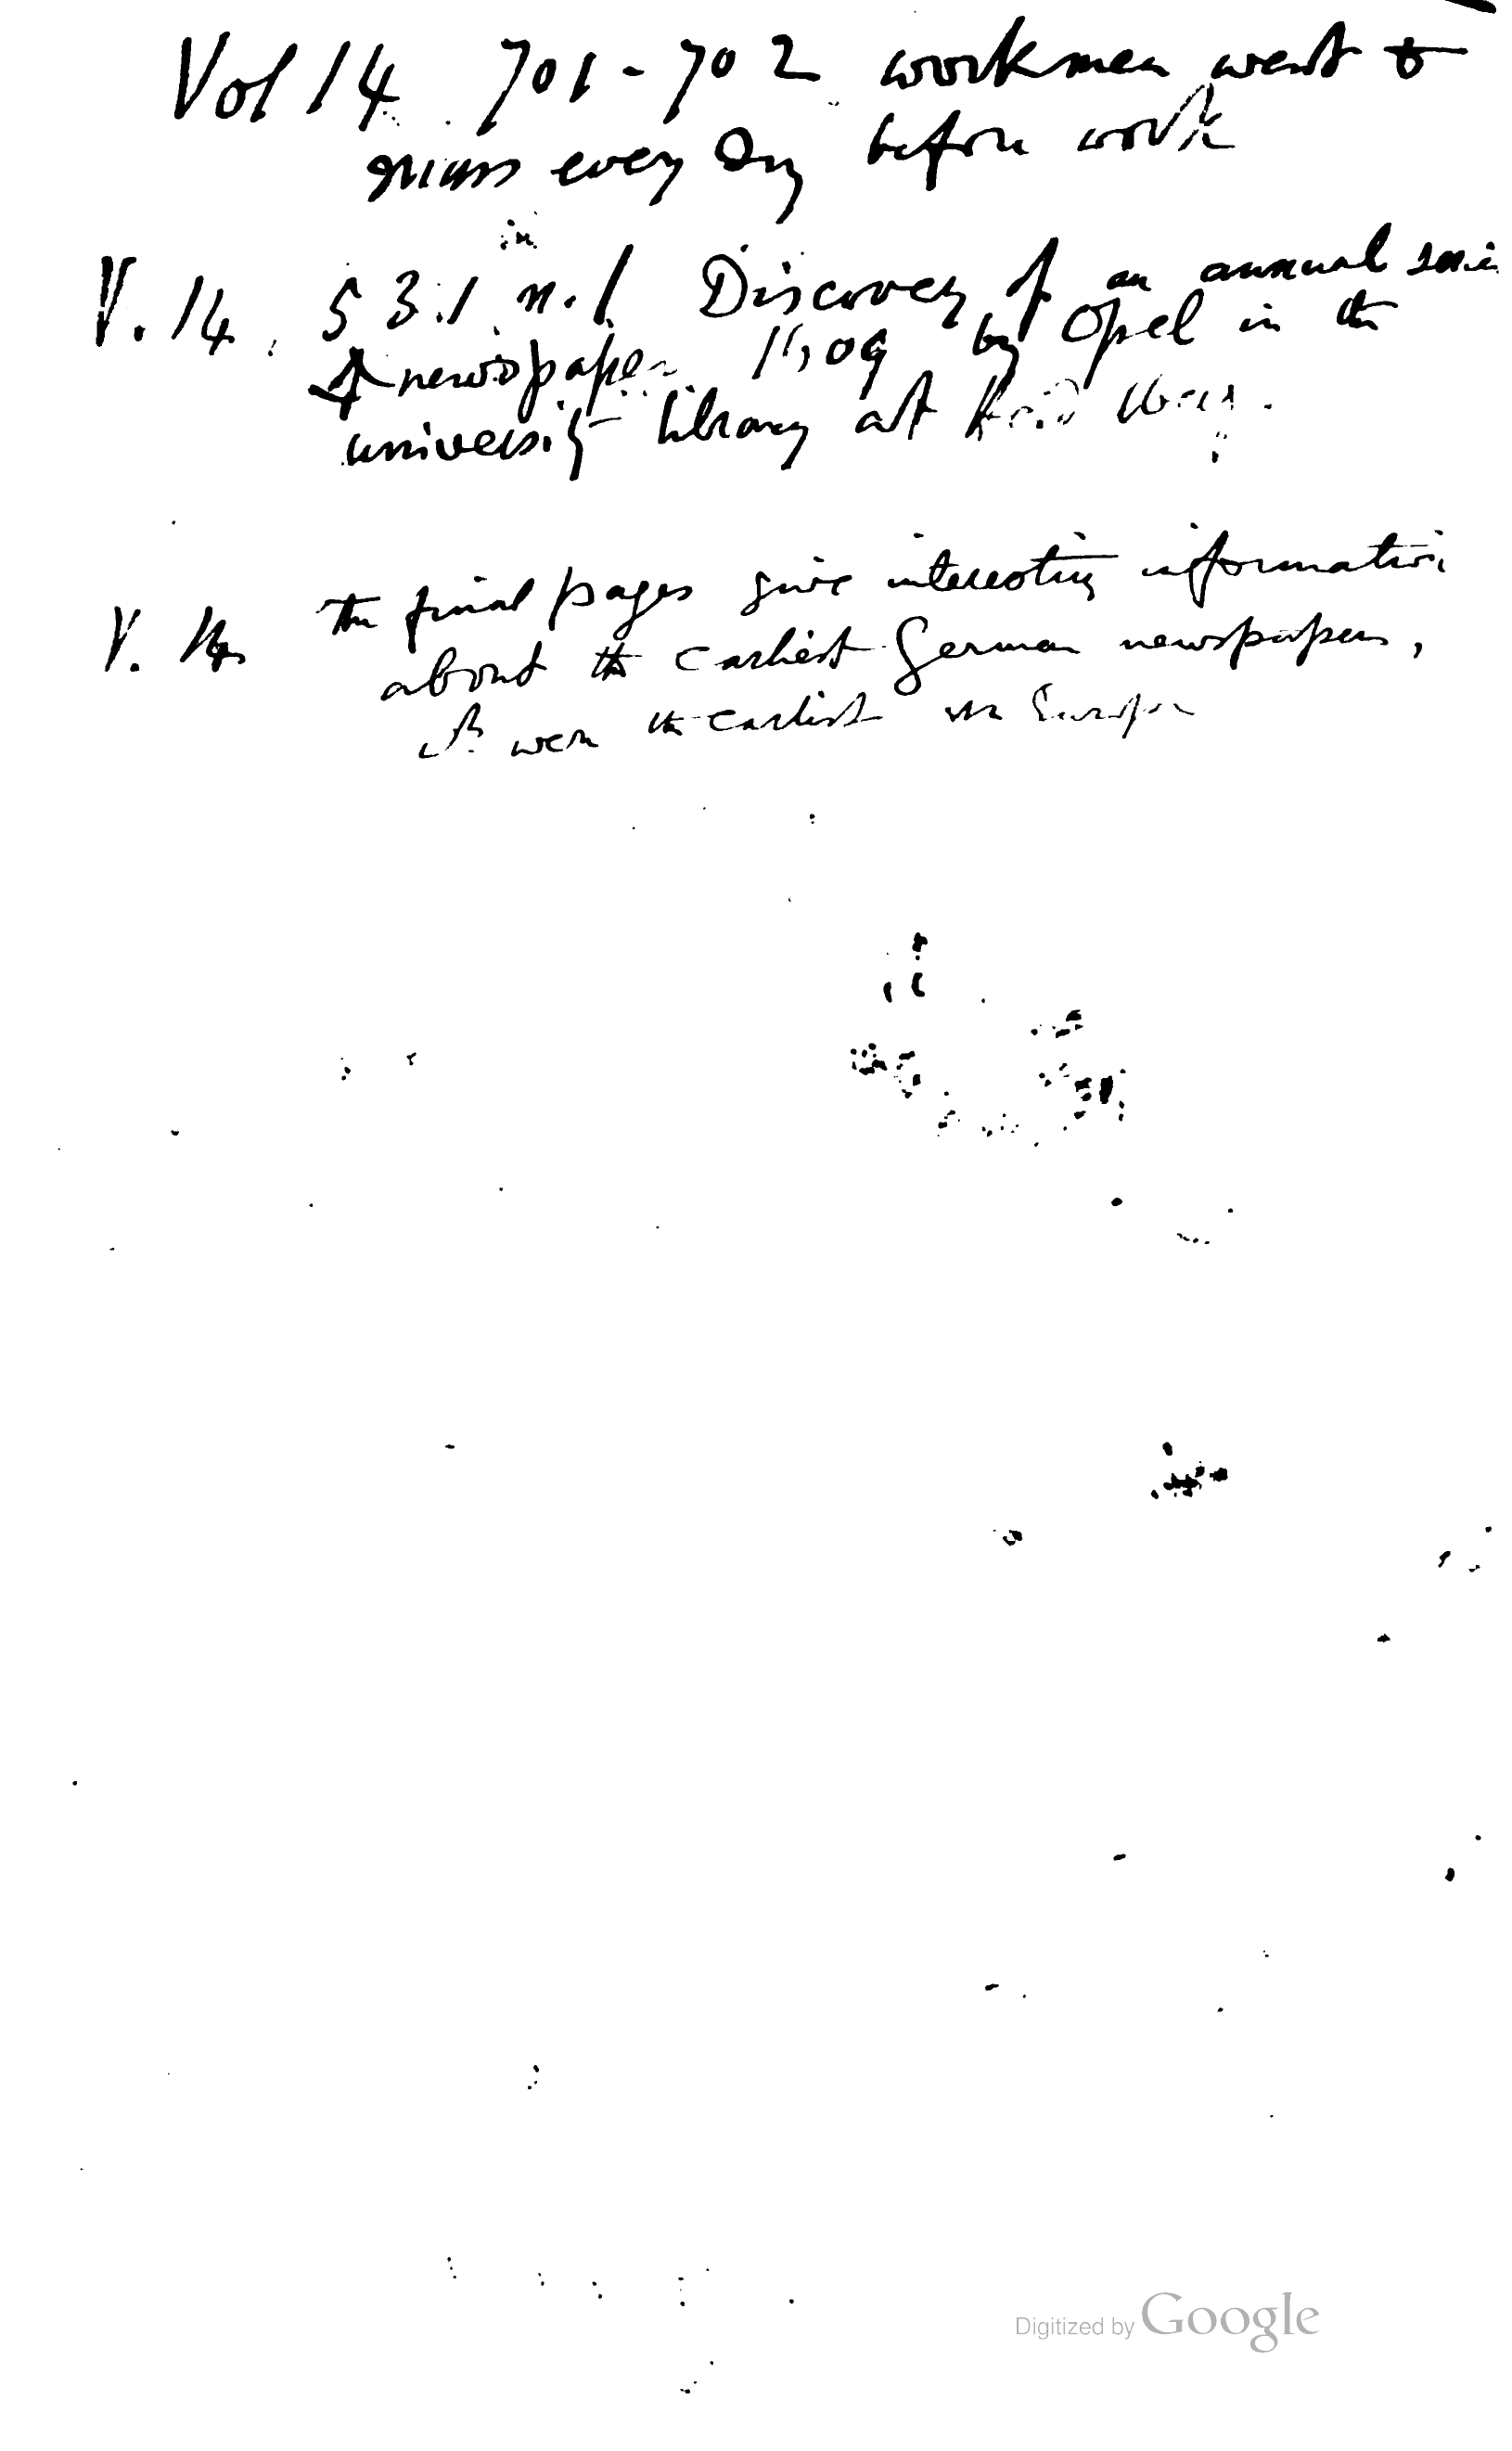 Vol 14 701-702 workmen went to
mass every day before work
V. 14. 531 n.1 Discovery of an annual
of newspaper 1609 by Opel in the
university library at
V. 14 The final pages give interesting information
about the earliest German newspapers,
were the earliest in Europe
Digitized by Google